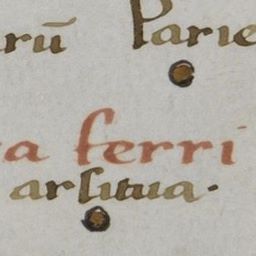 rū Parie
a ferri
arſitiua·